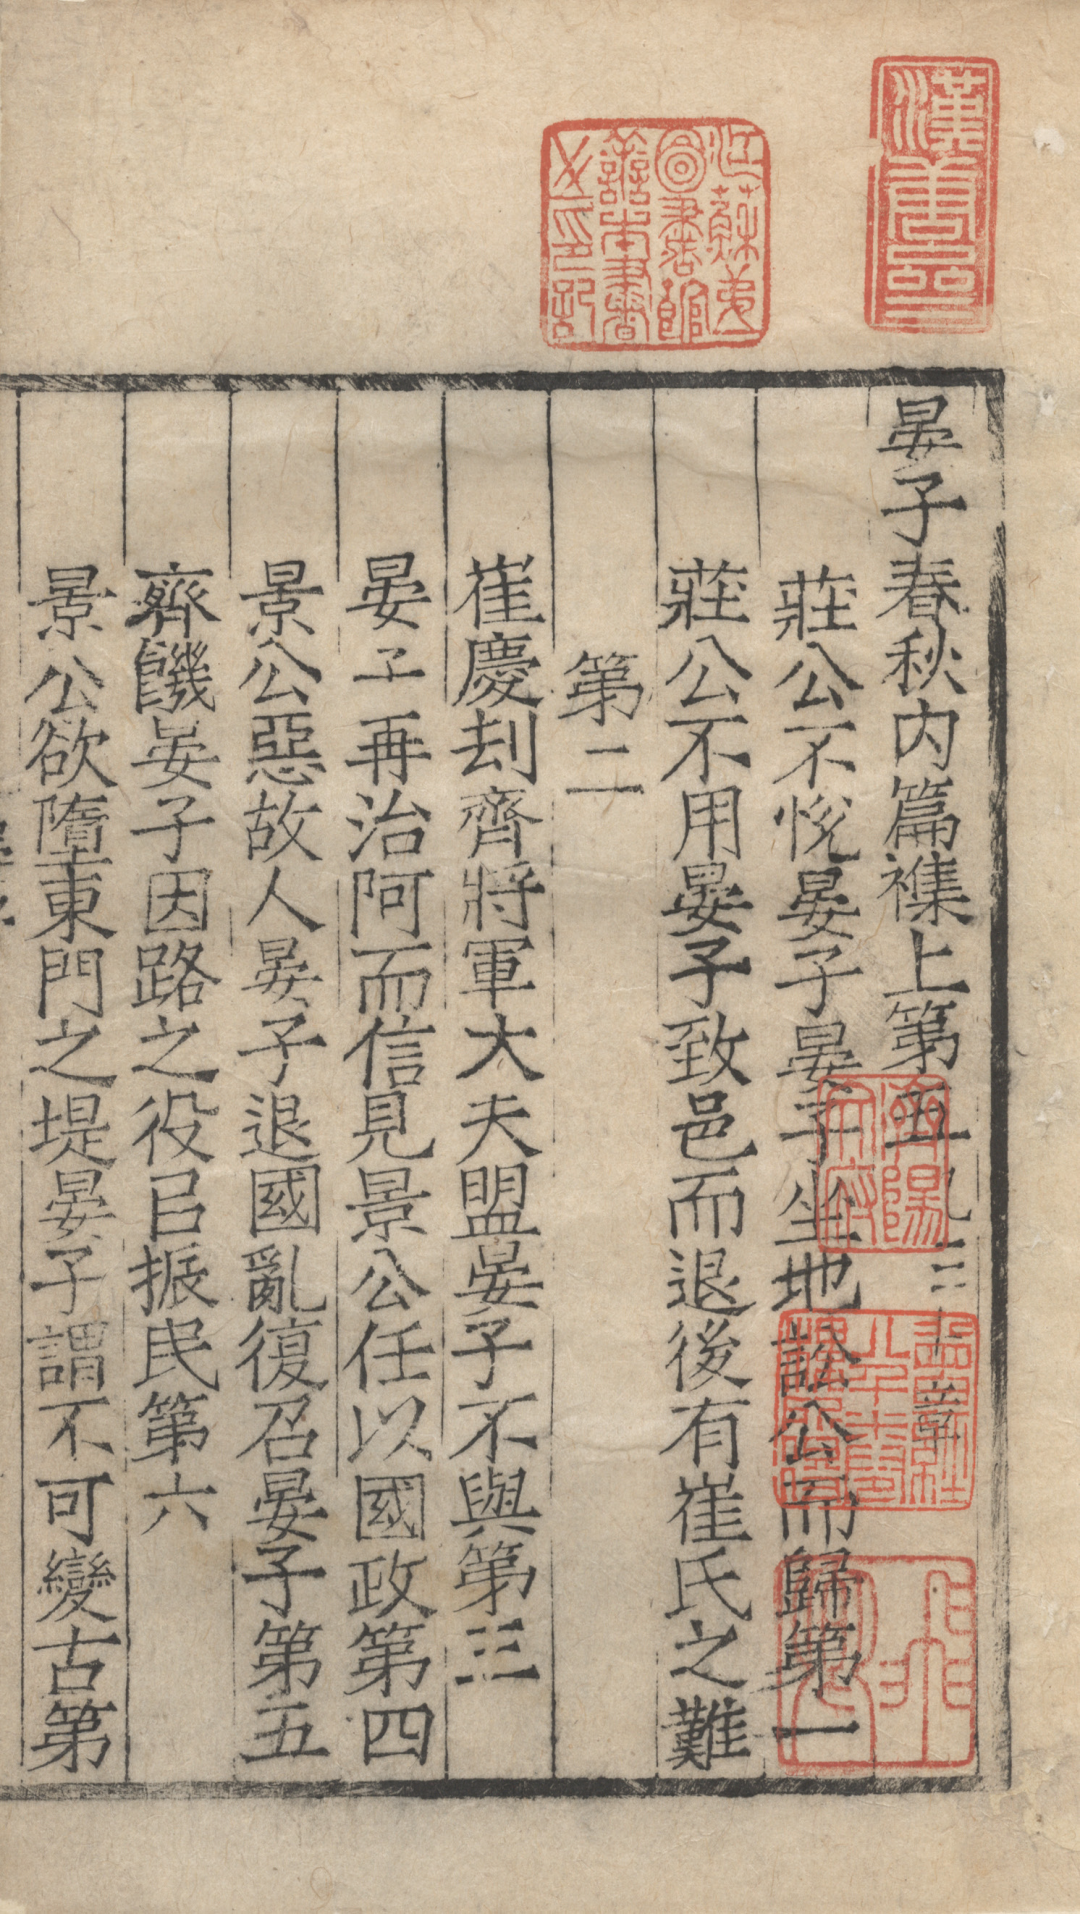 晏子春秋内篇襍上第五凡三十章
莊公不悅晏子晏子坐地訟公而歸第一
莊公不用晏子致邑而退後有崔氏之難
第二
崔慶刦齊將軍大夫盟晏子不與第三
晏子再治阿而信見景公任以國政第四
景公惡故人晏子退國亂復召晏子第五
齊饑晏子因路之役㠯振民第六
景公欲墮東門之堤晏子謂不可變古第
江蘇第一
圖書館
善本書
之印記